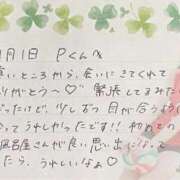 月1日 Pくんへ
ところから、会いにきてくれて
りがとうへ♡ 緊張してるみたい
だったけど、少しずつ目が合うように
って うれしかったです!! 初めての
風呂屋さんが良い思い出になって
たら、うれしいなぁ♡